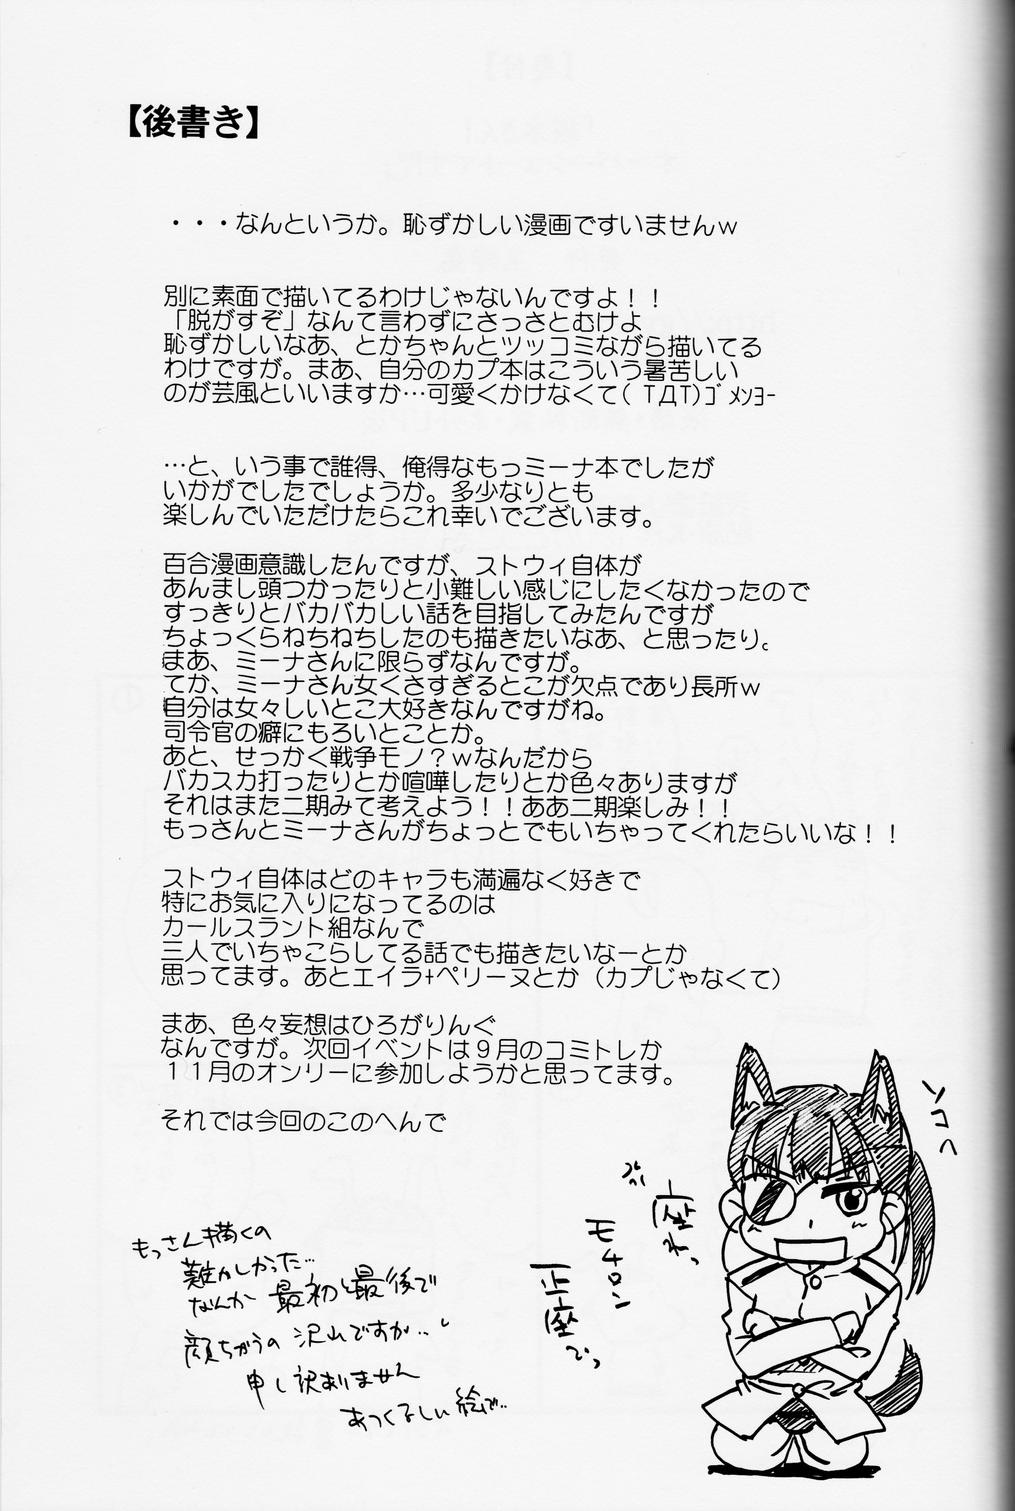 【後書き】
・・・なんというか。恥ずかしい漫画ですいませんｗ
別に素面で描いてるわけじゃないんですよ！！
「脱がすぞ」なんて言わずにさっさとむけよ
恥ずかしいなあ、とかちゃんとツッコミながら描いてる
わけですが。まあ、自分のカプ本はこういう暑苦しい
のが芸風といいますか…可愛くかけなくて( TДT)ｺﾞﾒﾝﾖｰ
…と、いう事で誰得、俺得なもっミーナ本でしたが
いかがでしたでしょうか。多少なりとも
楽しんでいただけたらこれ幸いでございます。
百合漫画意識したんですが、ストウィ自体が
あんまし頭つかったりと小難しい感じにしたくなかったので
すっきりとバカバカしい話を目指してみたんですが
ちょっくらねちねちしたのも描きたいなあ、と思ったり。
まあ、ミーナさんに限らずなんですが。
てか、ミーナさん女くさすぎるとこが欠点であり長所ｗ
自分は女々しいとこ大好きなんですがね。
司令官の癖にもろいとことか。
あと、せっかく戦争モノ？ｗなんだから
バカスカ打ったりとか喧嘩したりとか色々ありますが
それはまた二期みて考えよう！！ああ二期楽しみ！！
もっさんとミーナさんがちょっとでもいちゃってくれたらいいな！！
ストウィ自体はどのキャラも満遍なく好きで
特にお気に入りになってるのは
カールスラント組なんで
三人でいちゃこらしてる話でも描きたいなーとか
思ってます。あとエイラ+ペリーヌとか（カプじゃなくて）
まあ、色々妄想はひろがりんぐ
なんですが。次回イベントは９月のコミトレか
１１月のオンリーに参加しようかと思ってます。
それでは今回のこのへんで
ソコへ
座れっ
モチロン
正座でっ
もっさん描くの
難かしかった…
なんか 最初と最後で
顔ちがうの 沢山ですが…
申し訳ありません
あつくるしい絵で…